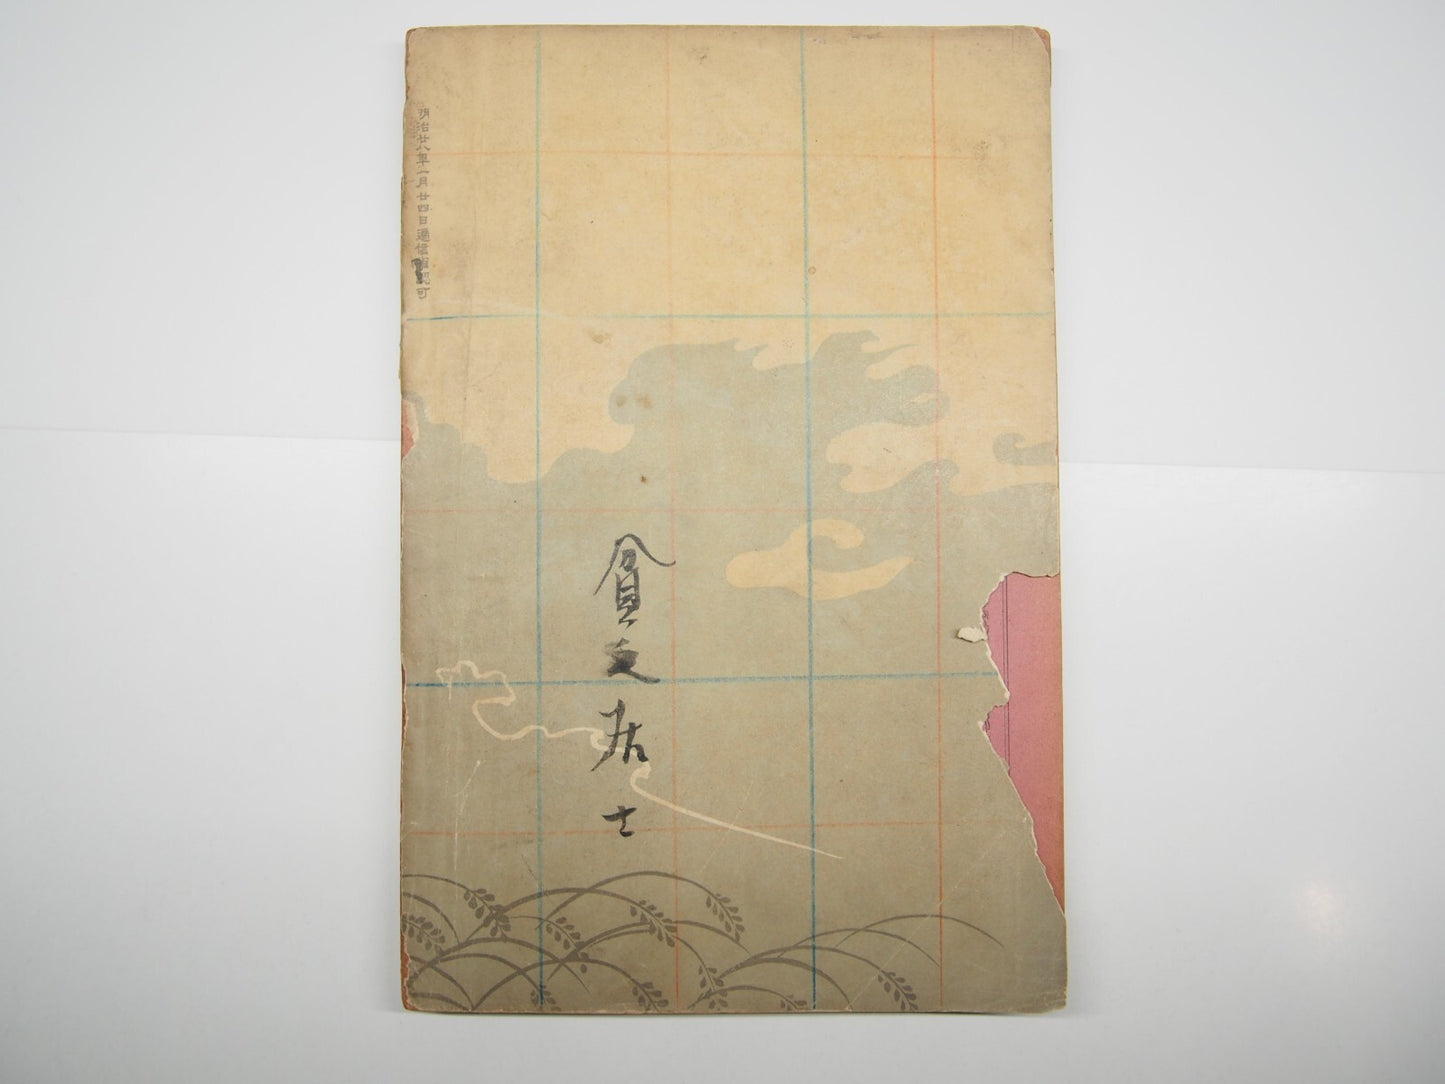 明治廿八年一月廿四日逓信省認可
貧乏居士